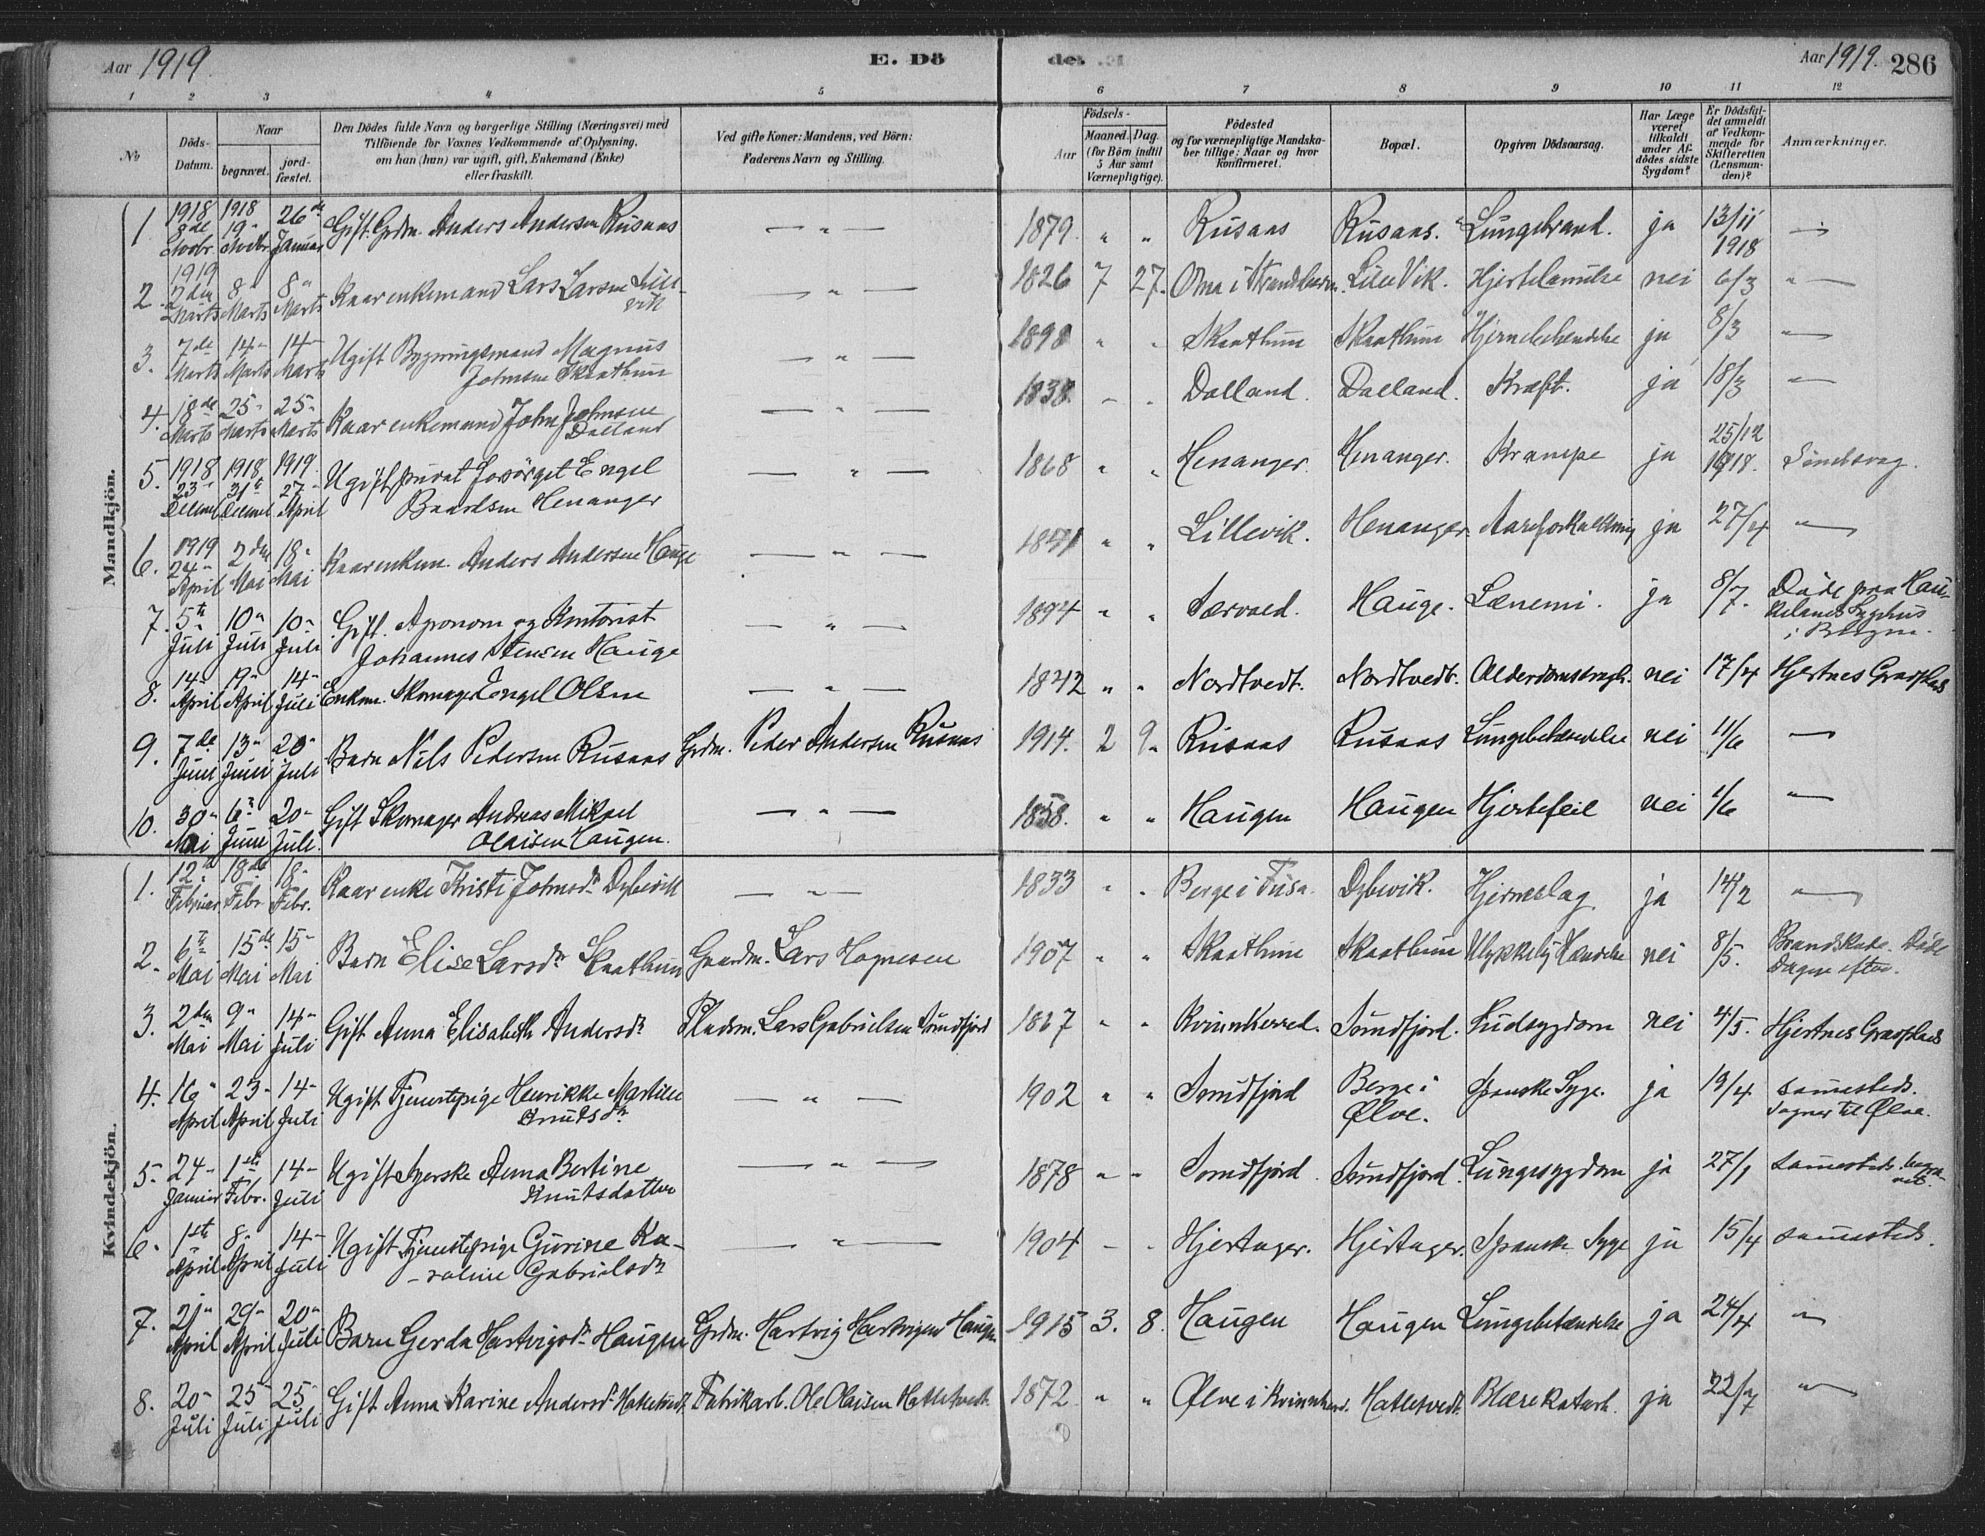 Aar 1919.
E. Dö
de
Aar 1919. 286
1 2 3 4 5 6 7 8 9 10 11 12
No
Döds-
Datum.
Naar
begravet.
jord-
fæstet.
Den Dödes fulde Navn og borgerlige Stilling (Næringsvei) med
Tilföiende for Voxnes Vedkommende af Oplysning,
om han (hun) var ugift, gift, Enkemand (Enke)
eller fraskilt.
Ved gifte Koner: Mandens, ved Börn:
Faderens Navn og Stilling.
Födsels-
Aar
Maaned. Dag.
(for Börn indtil
5 Aar samt
Værnepligtige).
Födested
og for værnepligtige Mandska-
ber tillige: Naar og hvor
konfirmeret.
Bopæl.
Opgiven Dödsaarsag.
Har Læge
været
tilkaldt
under Af-
dödes sidste
Sygdom?
Er Dödsfal-
det anmeldt
af Vedkom-
mende for
Skifteretten
(Lensman-
den)?
Anmærkninger.
Mandkjön.
1 1918 8de Novbr. 1918 19" Novbr. 26de Januar Gift. Grdm. Anders Andersen Rusaas — " — 1879 " " Rusaas Rusaas. Lungebrand. ja 13/11 1918 —
2. 1919 2den Marts 8" Marts 8" Marts Kaarenkemand Lars Larsen Lille-
vik — " — 1826 7 27. Oma i Strandebarm. Lille Vik. Hjertelamelse nei 6/3 "—
3. 7de Marts 14" Marts 14" Marts Ugift Bygningsmand Magnus
Johnsen Skaathun — " — 1898 " " Skaathun Skaathun Hjernebetændelse ja 8/3 "—
4. 18de Marts 25" Marts 25" Marts Kaarenkemand John Johnsen
Dalland — " — 1838. " " Dalland. Dalland. Kræft. ja 18/3 "—
5. 1918 23" Decmbr 1918 31te Decmbr 1919. 27" April Ugift privat forsörget Engel
Baardsen Henanger — " — 1868 " " Henanger. Henanger. Krampe ja 25/12 1918. Sindsvag.
6. 1919 24" April 2den Mai 18" Mai Kaarenkem. Anders Andersen Hauge — " — 1841 " " Lillevik. Henanger Aareforkalkning ja 27/4 "—
7. 5te Juli 10" Juli 10" Juli Gift. Agronom og Kontorist
Johannes Hauge — " — 1894 " " Hauge. ja 8/7. Döde paa Hau-
kelands Sygehus
i Bergen.
8. 14" April 19" April 14" Juli Enkem. Skomager Engel Olsen — " — 1842 " " Nordtvedt. Nordtvedt. Alderdomssvagh. nei 17/4 Hjertnes Gravplads
9. 7de Juni 13" Juni 20" Juli Barn Nils Pedersen Rusaas Grdm. Peder Andersen Rusaas 1914. 2 9. Rusaas Rusaas Lungebetændelse nei 11/6 —
10. 30" Mai 6" Juni 20" Juli. Gift Skomager Andreas Mikael
Olaisen Haugen. — " — 1858. " " Haugen Haugen Hjertefeil nei 1/6 "—
Kvindekjön.
1. 12" Februar 18de Febr. 18" Febr. Kaarenke Kristi Johnsdr. Dybevik — " — 1833 " " Berge i Fusa. Dybevik. Hjerneslag ja 14/2 "—
2. 6te Mai 15de Mai 15" Mai Barn Elise Larsdr. Skaathun Gaardm. Lars Hognesen 1907 " " Skaathun Skaathun Ulykkelig Hændelse nei 8/5. Brandskade. Döde
Dagen efter.
3. 2den Mai 9" Mai 14" Juli Gift Anna Elisabeth Andersdr. Pladsm. Lars Gabrielsen Sundfjord 1867 " " Kvinnherred. Sundfjord. Hudsygdom nei 4/5. Hjertnes Gravplads
4. 16" April 23" April 14" Juli Ugift Tjenestepige Henrikke Martine
Knutsdr. — " — 1902 " " Sundfjord Berge i
Ølve. Spanske Syge. ja 19/4 sammesteds.
Sogner til Ølve.
5. 24" Januar 1ste Febr. 14" Juli Ugift Syerske Anna Bertine
Knutsdatter — " — 1878 " " Sundfjord Sundfjord. Lungesygdom ja 27/1 sammesteds. begra-
vet.
6. 1ste April 8" April 14" Juli Ugift Tjenestepige Gurine Ka-
roline Gabrielsdr — " — 1904 " " Hjertager. Hjertager. Spanske Syge ja 15/4 sammesteds.
7. 21" April 29" April 20" Juli Barn Gerda Hartvigsdr. Haugen Grdm. Hartvig Hartvigsen Haugen 1915 3. 8. Haugen Haugen Lungebetændelse ja 24/4 "—
8. 20" Juli 25 Juli 25" Juli Gift Anna Karine Andersdr. Hatletvedt. Fabrikarb. Ole Olaisen Hatletvedt. 1872 " " Ølve i Kvinnherd. Hatletvedt. Blærekatarh. ja 22/7 "—